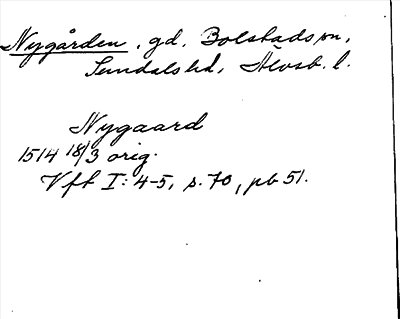 Nygården, gd, Bolstads sn,
Sundals hd, Älvsb. l.
Nygaard
1514 18/3 orig.
Vft I: 4-5, s. 70, pb 51.